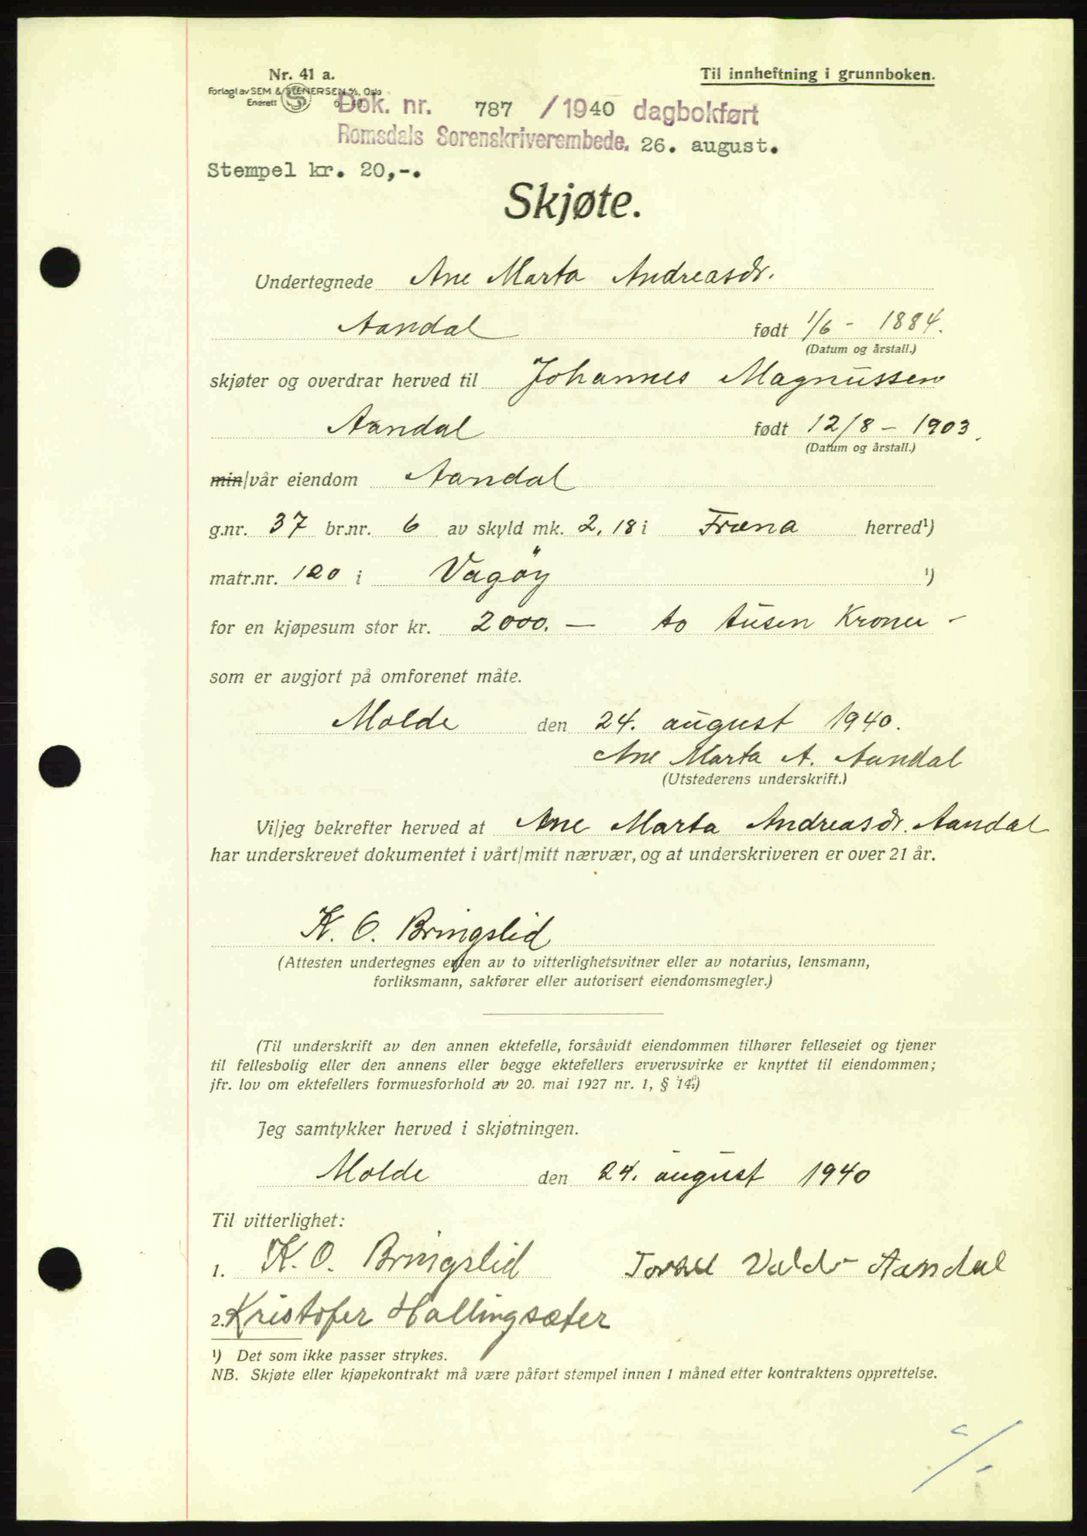 Nr. 41 a.
Til innheftning i grunnboken.
Forlagt av SEM & STENERSEN A/S, Oslo
Enerett S 6-40
Dok. nr. 787 /1940 dagbokført
Romsdals Sorenskriverembede. 26. august.
Stempel kr. 20,-.
Skjøte.
Undertegnede Ane Marta Andreasdr.
Aandal født 1/6 - 1884.
(Datum og årstall.)
skjøter og overdrar herved til Johannes Magnussen
Aandal født 12/8 - 1903.
(Datum og årstall.)
min/vår eiendom Aandal
g.nr. 37 br.nr. 6 av skyld mk. 2,18 i Fræna herred¹)
matr.nr. 120 i Vagøy ¹)
for en kjøpesum stor kr. 2000. — to tusen Kroner -
som er avgjort på omforenet måte.
Molde den 24. august 1940.
Ane Marta A. Aandal
(Utstederens underskrift.)
Vi/jeg bekrefter herved at Ane Marta Andreasdr. Aandal
har underskrevet dokumentet i vårt/mitt nærvær, og at underskriveren er over 21 år.
K. O. Bringslid
(Attesten undertegnes enten av to vitterlighetsvitner eller av notarius, lensmann,
forliksmann, sakfører eller autorisert eiendomsmegler.)
(Til underskrift av den annen ektefelle, forsåvidt eiendommen tilhører felleseiet og tjener
til fellesbolig eller den annens eller begge ektefellers ervervsvirke er knyttet til eiendommen;
jfr. lov om ektefellers formuesforhold av 20. mai 1927 nr. 1, § 14.)
Jeg samtykker herved i skjøtningen.
Molde den 24. august 1940
Til vitterlighet:
1. K. O. Bringslid Aandal
2. Kristofer Hallingsæter
¹) Det som ikke passer strykes.
NB. Skjøte eller kjøpekontrakt må være påført stempel innen 1 måned etter kontraktens opprettelse.